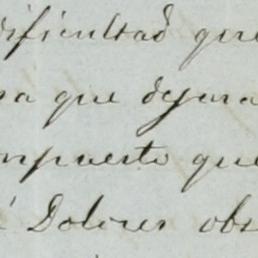 dificultad que
sa que dejara
mpuesto que
é Dolores obs